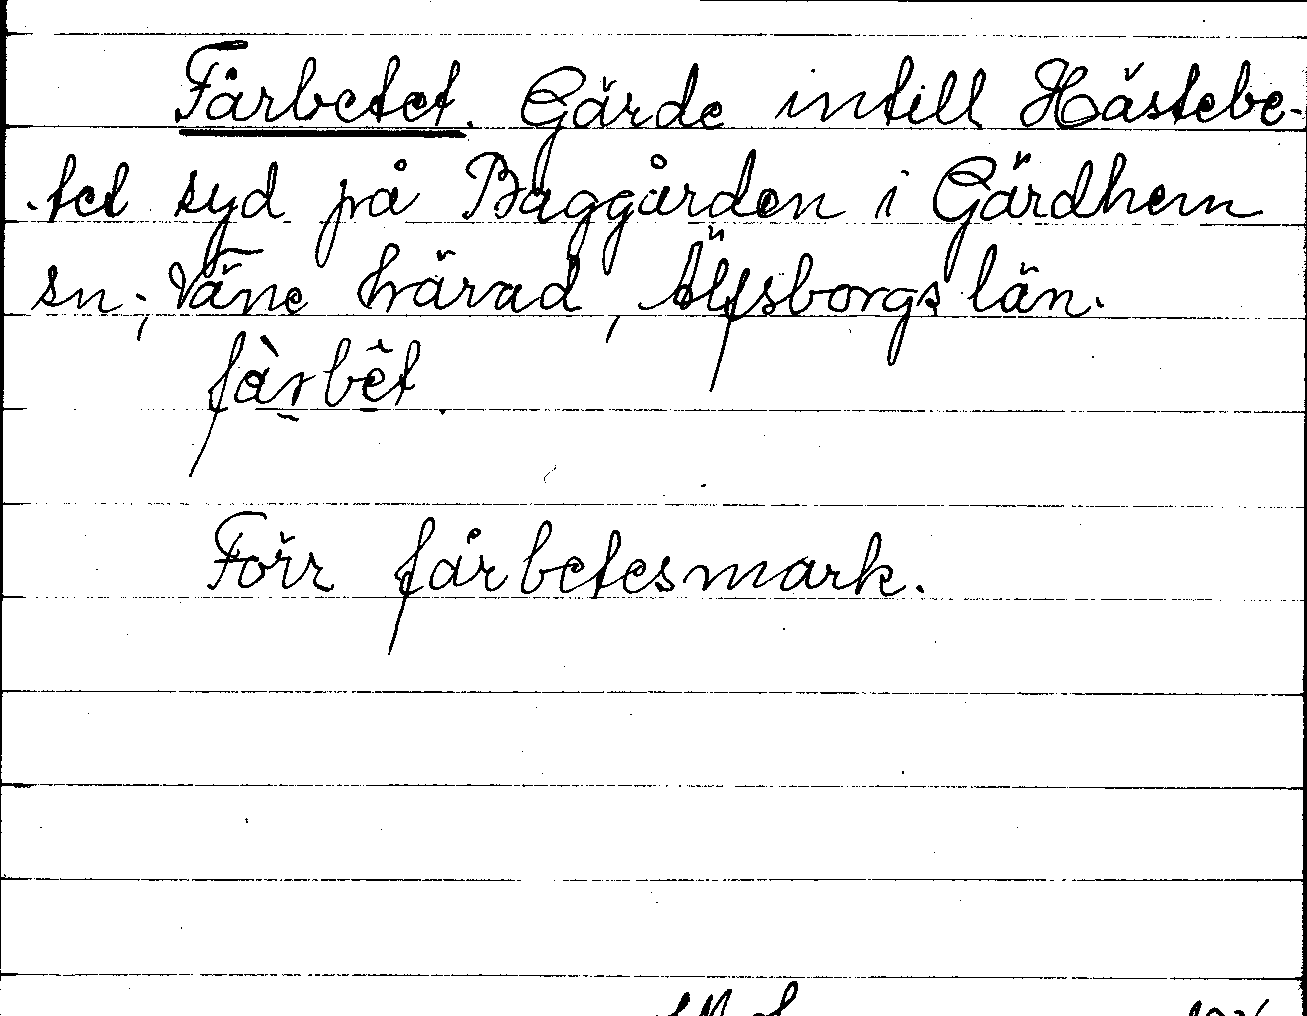 Fårbetet. Gärde intill Hästebe-
tet syd på Baggården i Gärdhem
sn; Väne härad, Älfsborgs län.
fàrbêt.
Förr fårbetesmark.